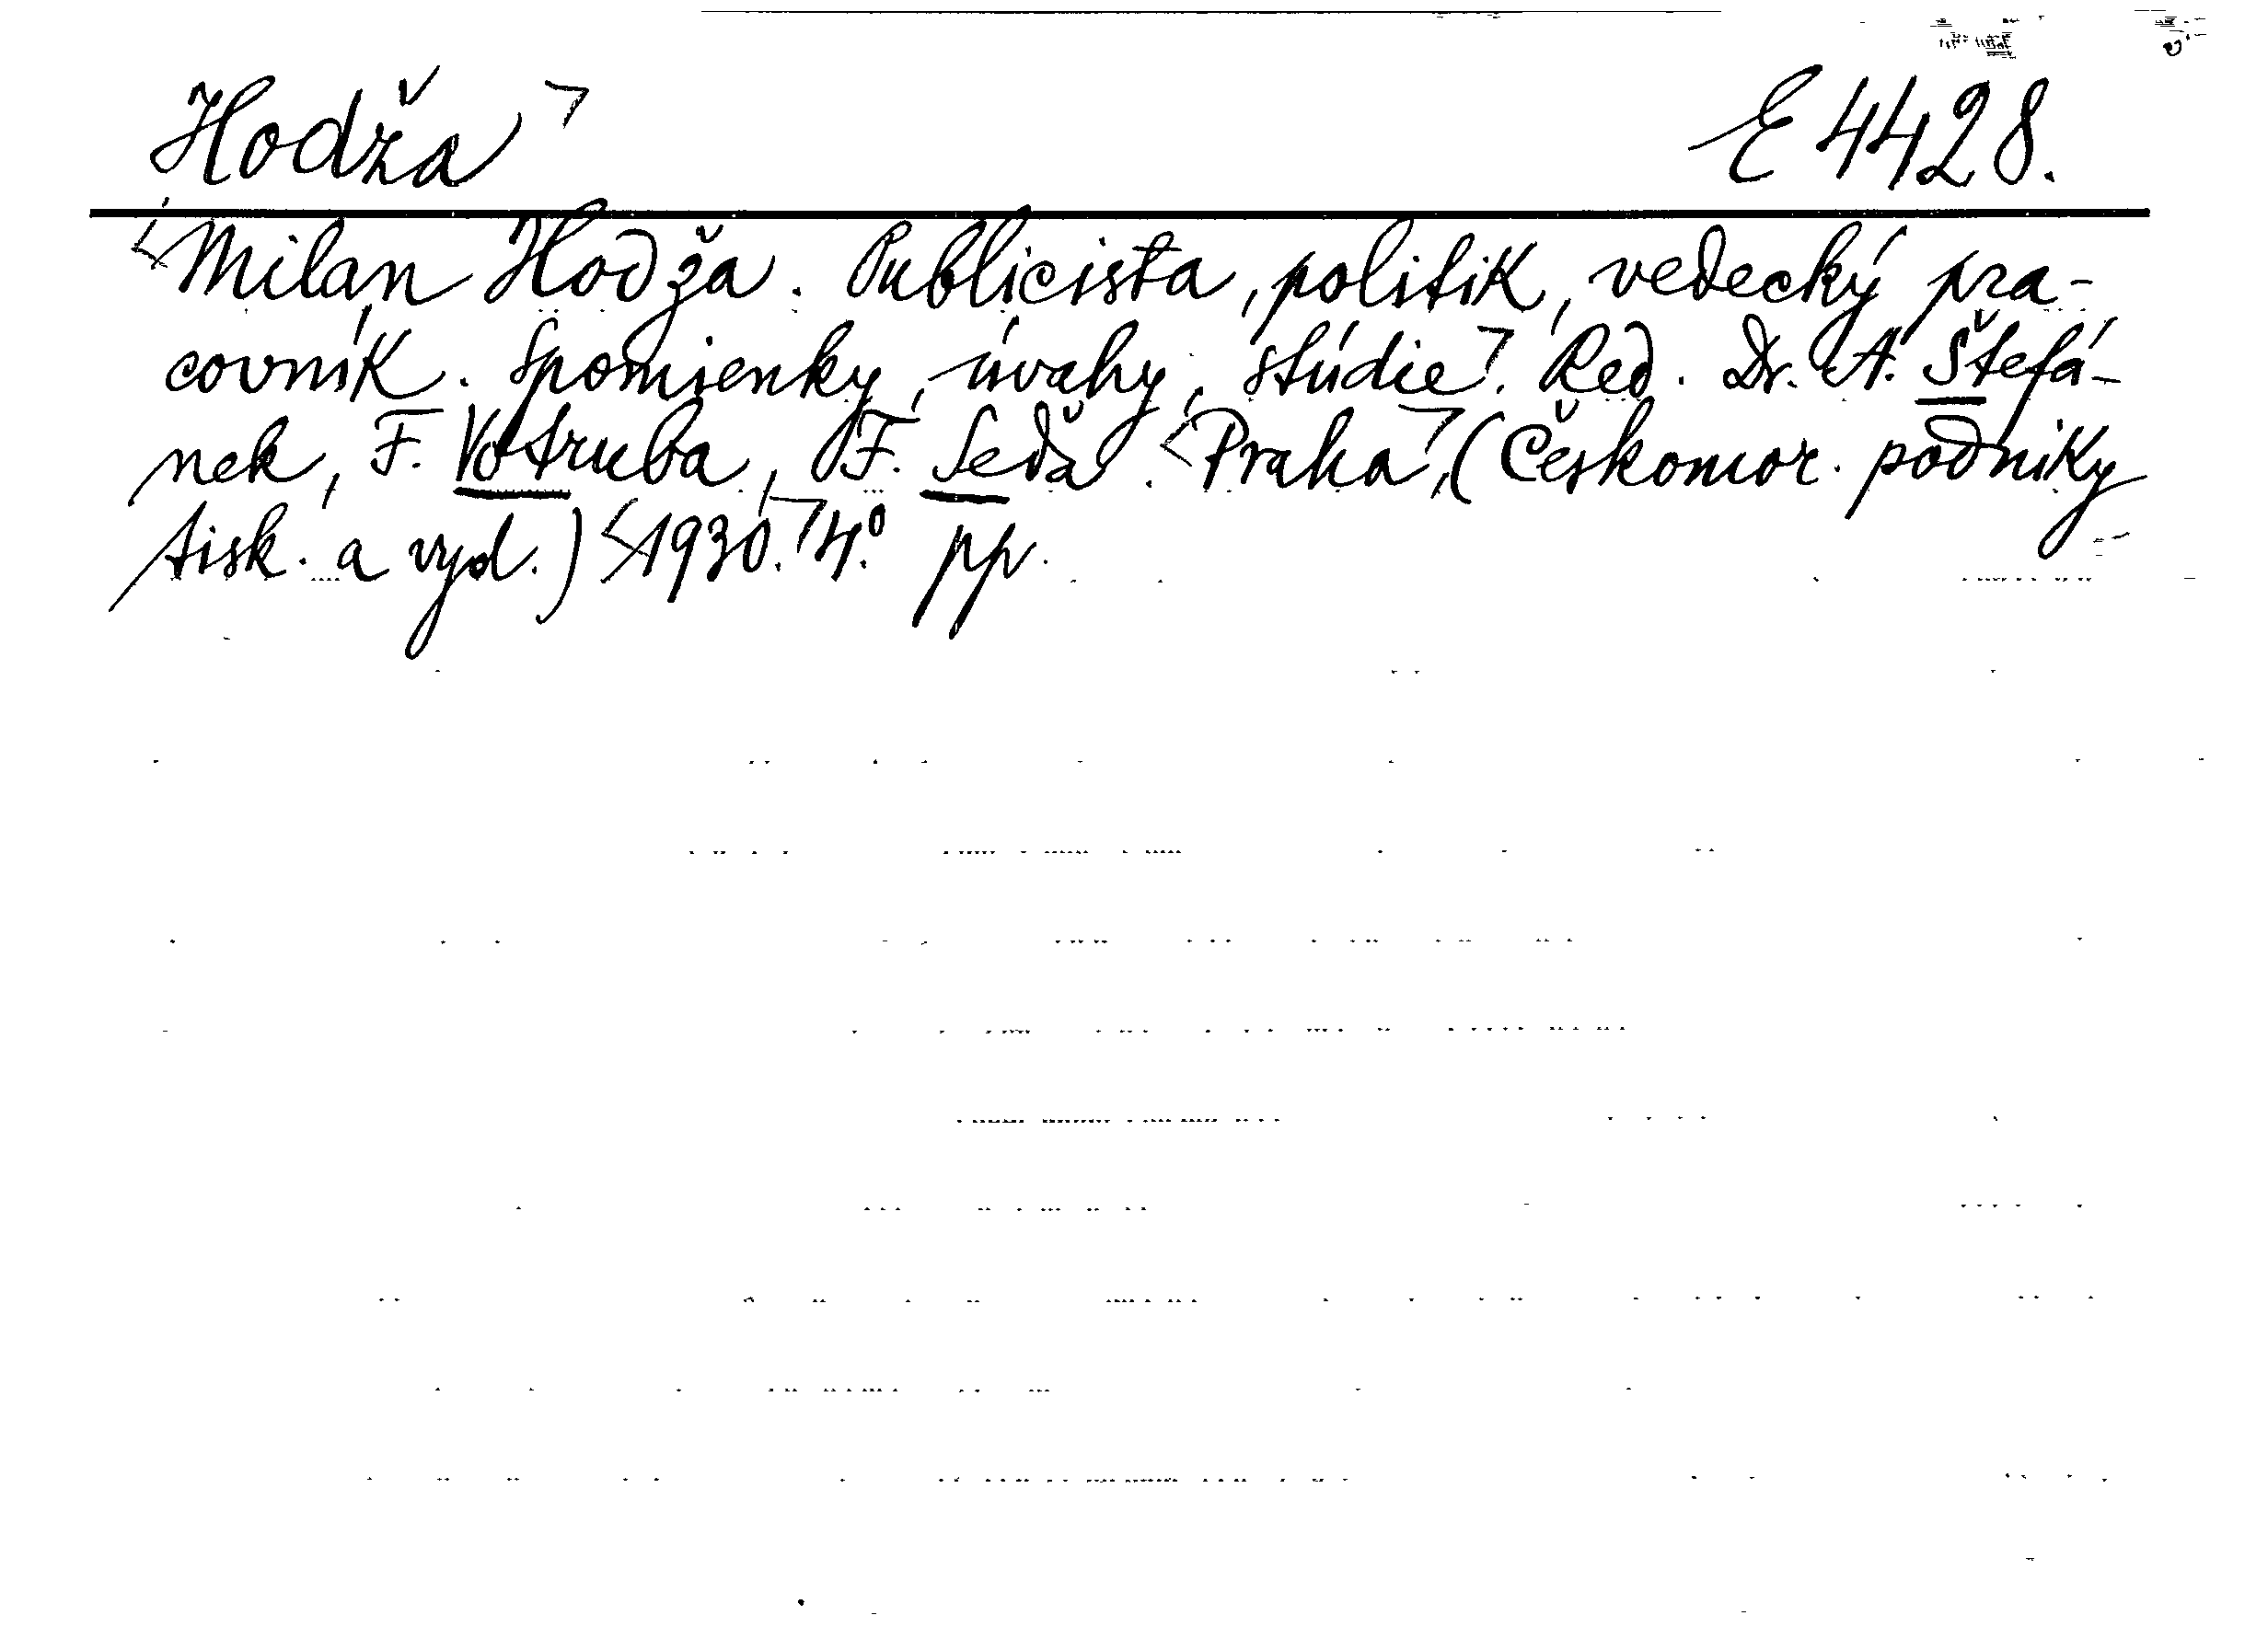 Hodža E 4428.
Milan Hodža. Publicista, politik, vedecký pra-
covník. Spomienky, úvahy, štúdie. Red. Dr. A. Štefá-
nek, F. Votruba, F. Seďa. Praha, (Českomor. podniky
tisk. a vyd.) 1930. 4.° pp.